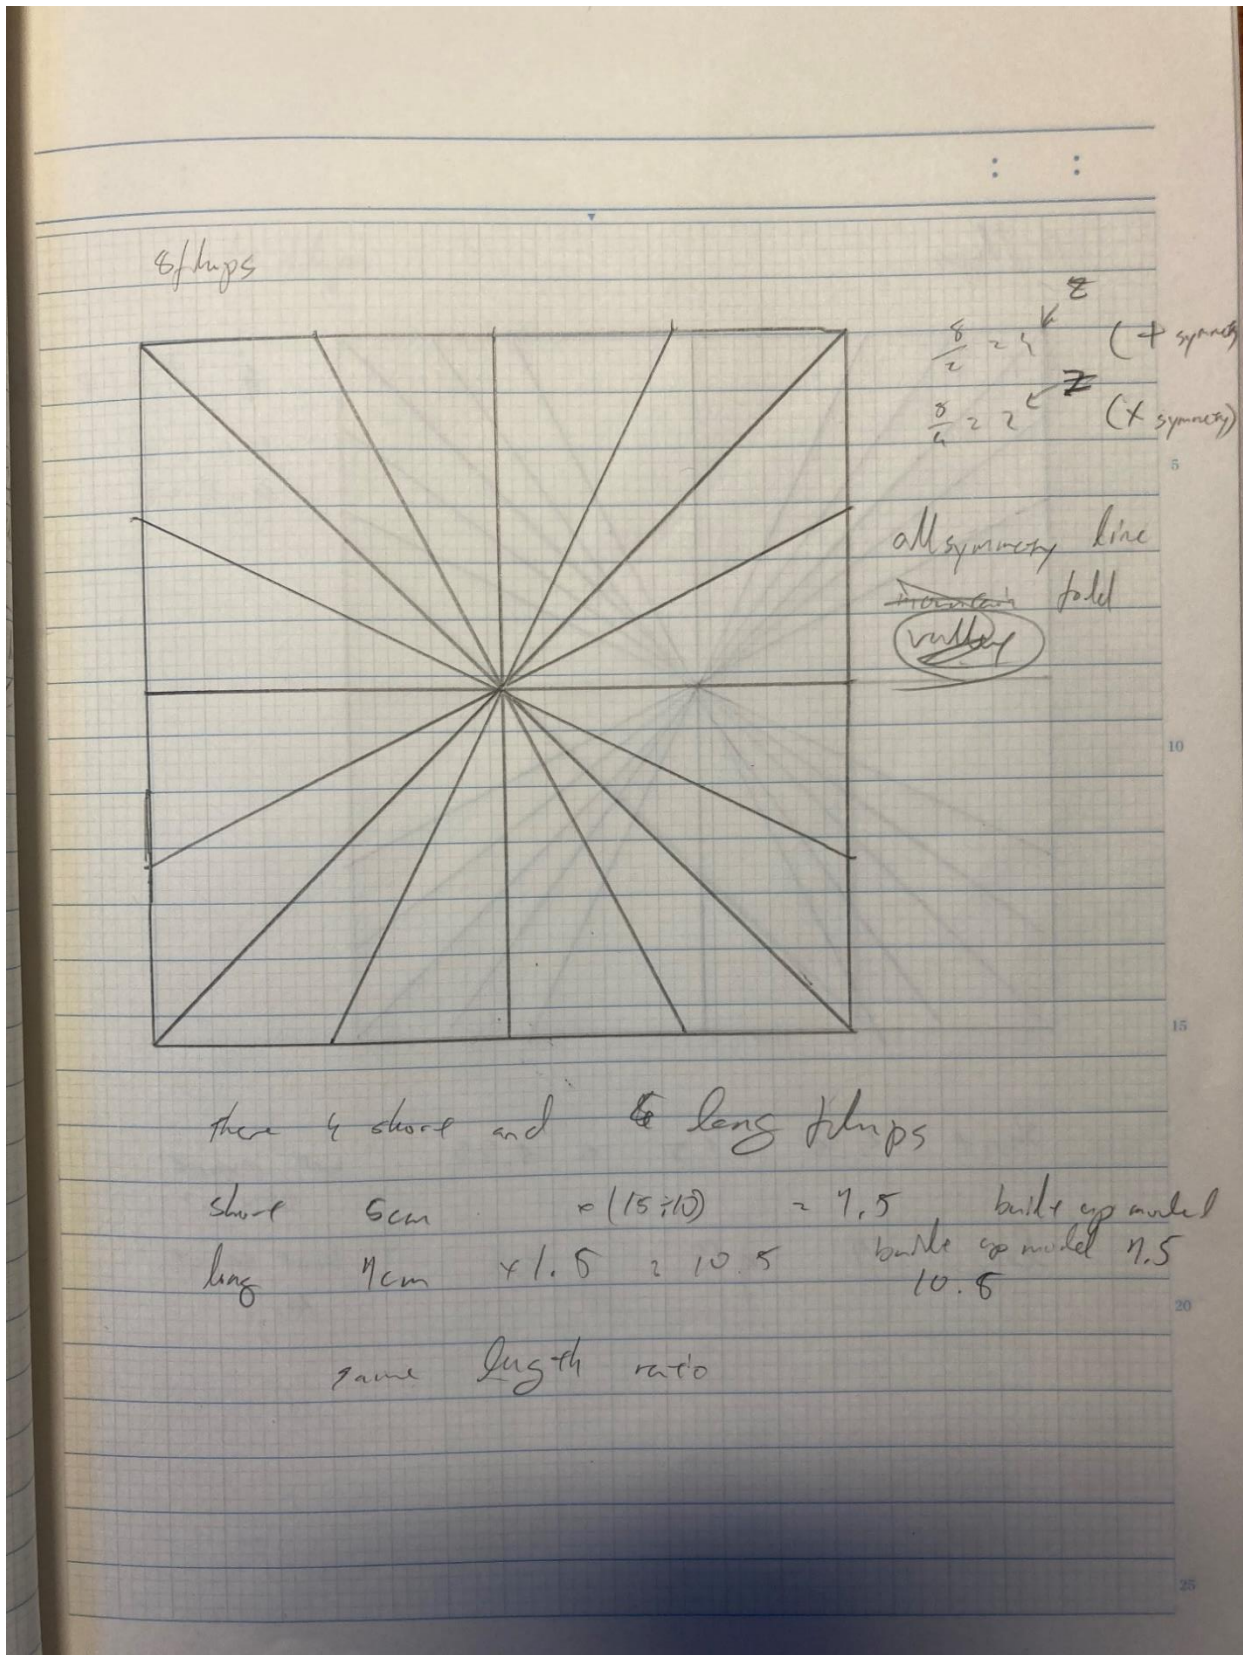 8 flaps
z
8/2 = 4 (+ symmetry)
z
8/4 = 2 (x symmetry)
all symmetry line
mountain fold
valley
there 4 short and 4 long flaps
short 5cm × (15÷10) = 7.5 built up model 7.5
long 7cm × 1.5 = 10.5 built up model 10.5
same length ratio
5
10
15
20
25